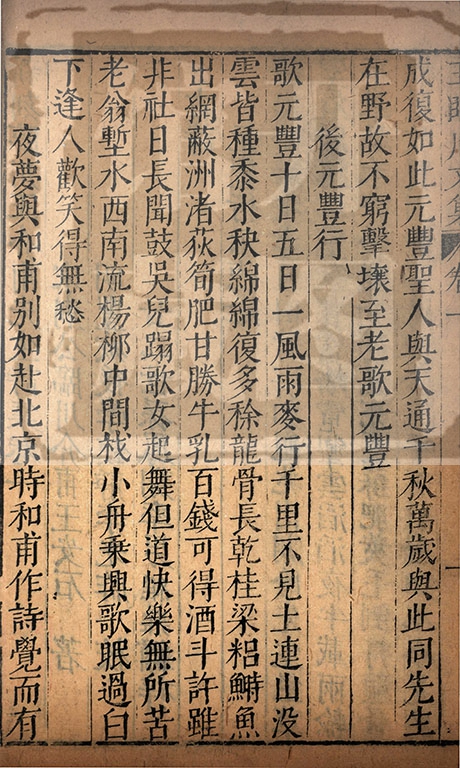 王臨川文集 卷一
成復如此元豐聖人與天通千秋萬歲與此同先生
在野故不窮擊壤至老歌元豐
後元豐行
歌元豐十日五日一風雨麥行千里不見土連山沒
雲皆種黍水秧綿綿復多稌龍骨長乾挂梁梠鰣魚
出網蔽洲渚荻筍肥甘勝牛乳百錢可得酒斗許雖
非社日長聞鼓吳兒蹋歌女起舞但道快樂無所苦
老翁塹水西南流楊柳中間杙小舟乗興欹眠過白
下逢人歡笑得無愁
夜夢與和甫別如赴北京時和甫作詩覺而有